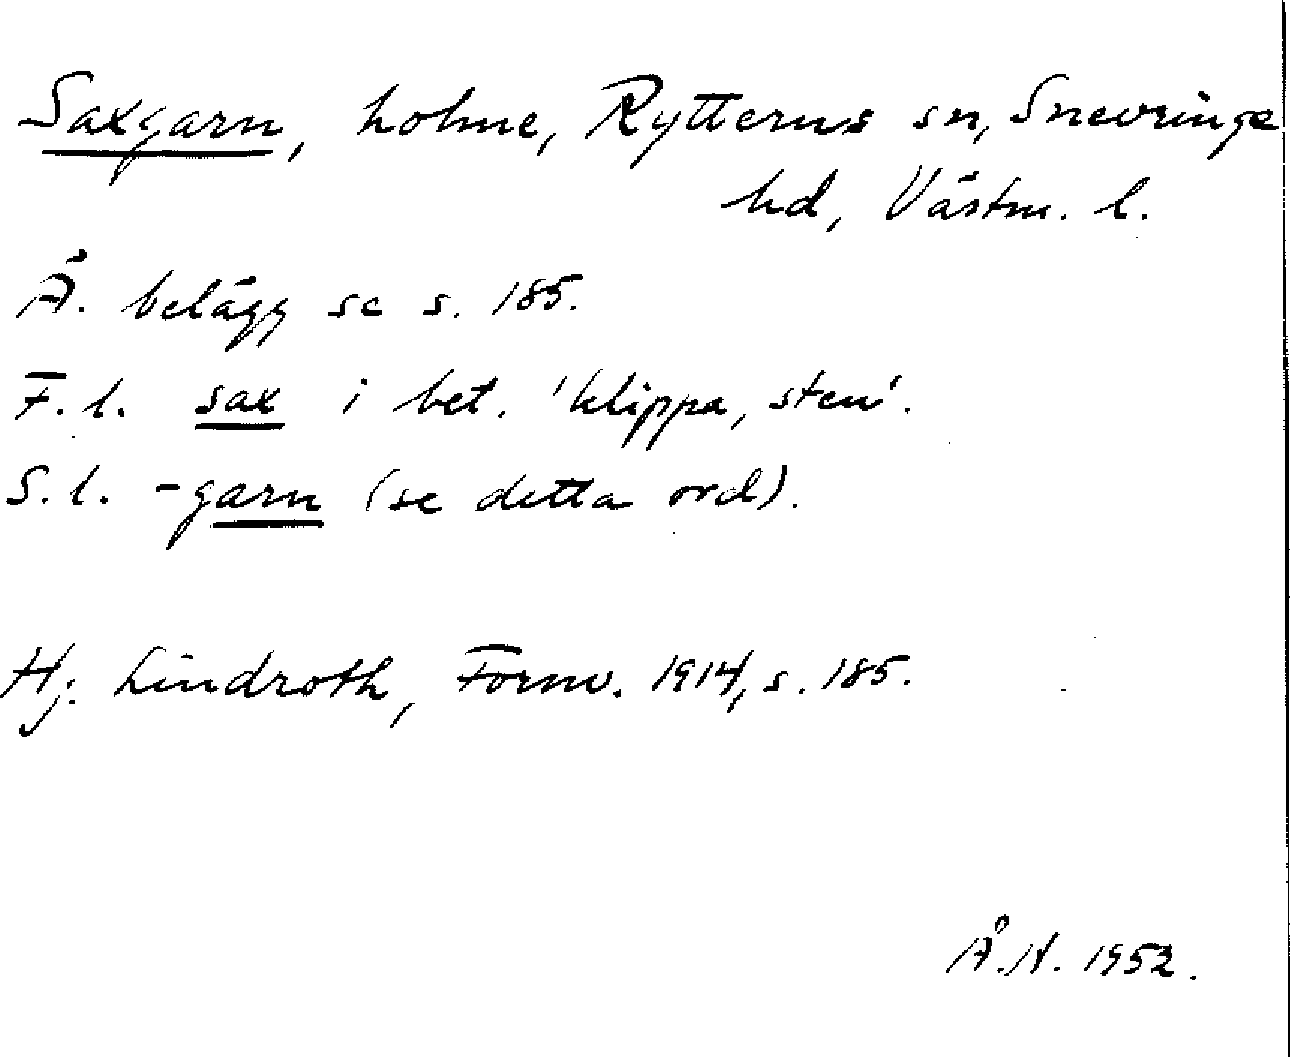 Saxgarn, holme, Rytterns sn, Snevringe
hd, Västm. l.
Ä. belägg se s. 185.
F.l. sax i bet. 'klippa, sten'.
S.l. -garn (se detta ord).
Hj. Lindroth, Fornv. 1914, s. 185.
Å.N. 1952.